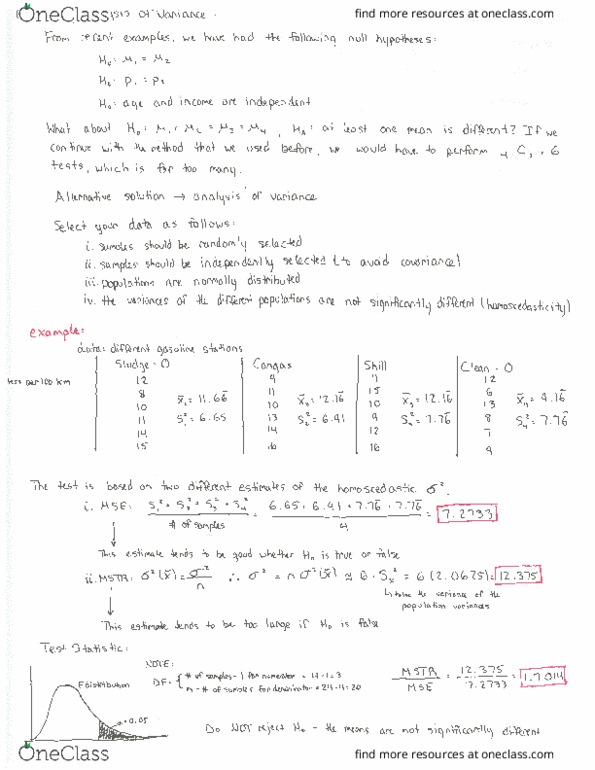 OneClass
find more resources at oneclass.com
of Variance.
From recent examples, we have had the following null hypotheses:
H₀: μ₁ = μ₂
H₀: p₁ = p₂
H₀: age and income are independent
What about H₀: μ₁ = μ₂ = μ₃ = μ₄, Hₐ: at least one mean is different? If we
continue with the method that we used before, we would have to perform ₄C₂ = 6
tests, which is far too many.
Alternative solution → analysis of variance
Select your data as follows:
i. samples should be randomly selected
ii. samples should be independently selected (to avoid covariance)
iii. populations are normally distributed
iv. the variances of the different populations are not significantly different (homoscedasticity)
example:
data: different gasoline stations
Sludge-O Cangas Shill Clean-O
per 100 km
12 9 12
8 11 15 6
10 10 10 13
11 13 9 8
14 14 12 7
15 16 16 9
x̄₁ = 11.66 x̄₂ = 12.16 x̄₃ = 12.16 x̄₄ = 9.16
S₁² = 6.65 S₂² = 6.91 S₃² = 7.76 S₄² = 7.76
The test is based on two different estimates of the homoscedastic σ².
i. MSE: S₁² + S₂² + S₃² + S₄² / # of samples = 6.65 + 6.91 + 7.76 + 7.76 / 4 = 7.2733
This estimate tends to be good whether H₀ is true or false
ii. MSTR: σ²(x̄) = σ²/n ∴ σ² = n σ²(x̄) ≈ 6 · Sₓ̄² = 6 (2.0625) = 12.375
the variance of the
population variances
This estimate tends to be too large if H₀ is false
Test Statistic:
NOTE:
F distribution
α = 0.05
DF = { # of samples - 1 for numerator = 4-1 = 3
n - # of samples for denominator = 24-4 = 20
MSTR / MSE = 12.375 / 7.2733 = 1.7014
Do NOT reject H₀ - the means are not significantly different
OneClass
find more resources at oneclass.com